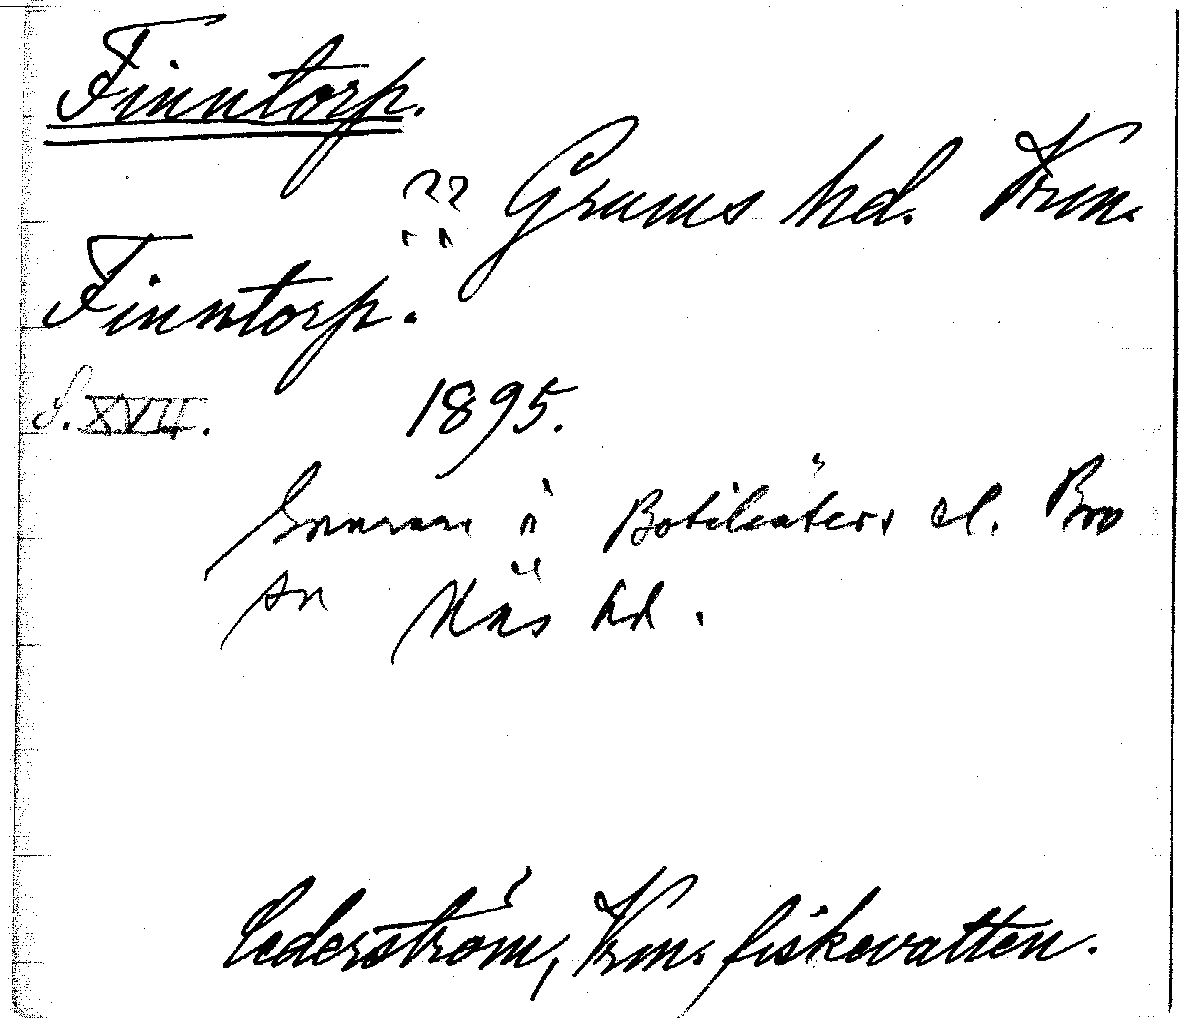 Finntorp.
?? Grums hd. Vrm.
Finntorp.
S. XVII. 1895.
Snarare i Botilsäters el. Bro
sn Näs hd.
Cederström, Vrm. fiskevatten.